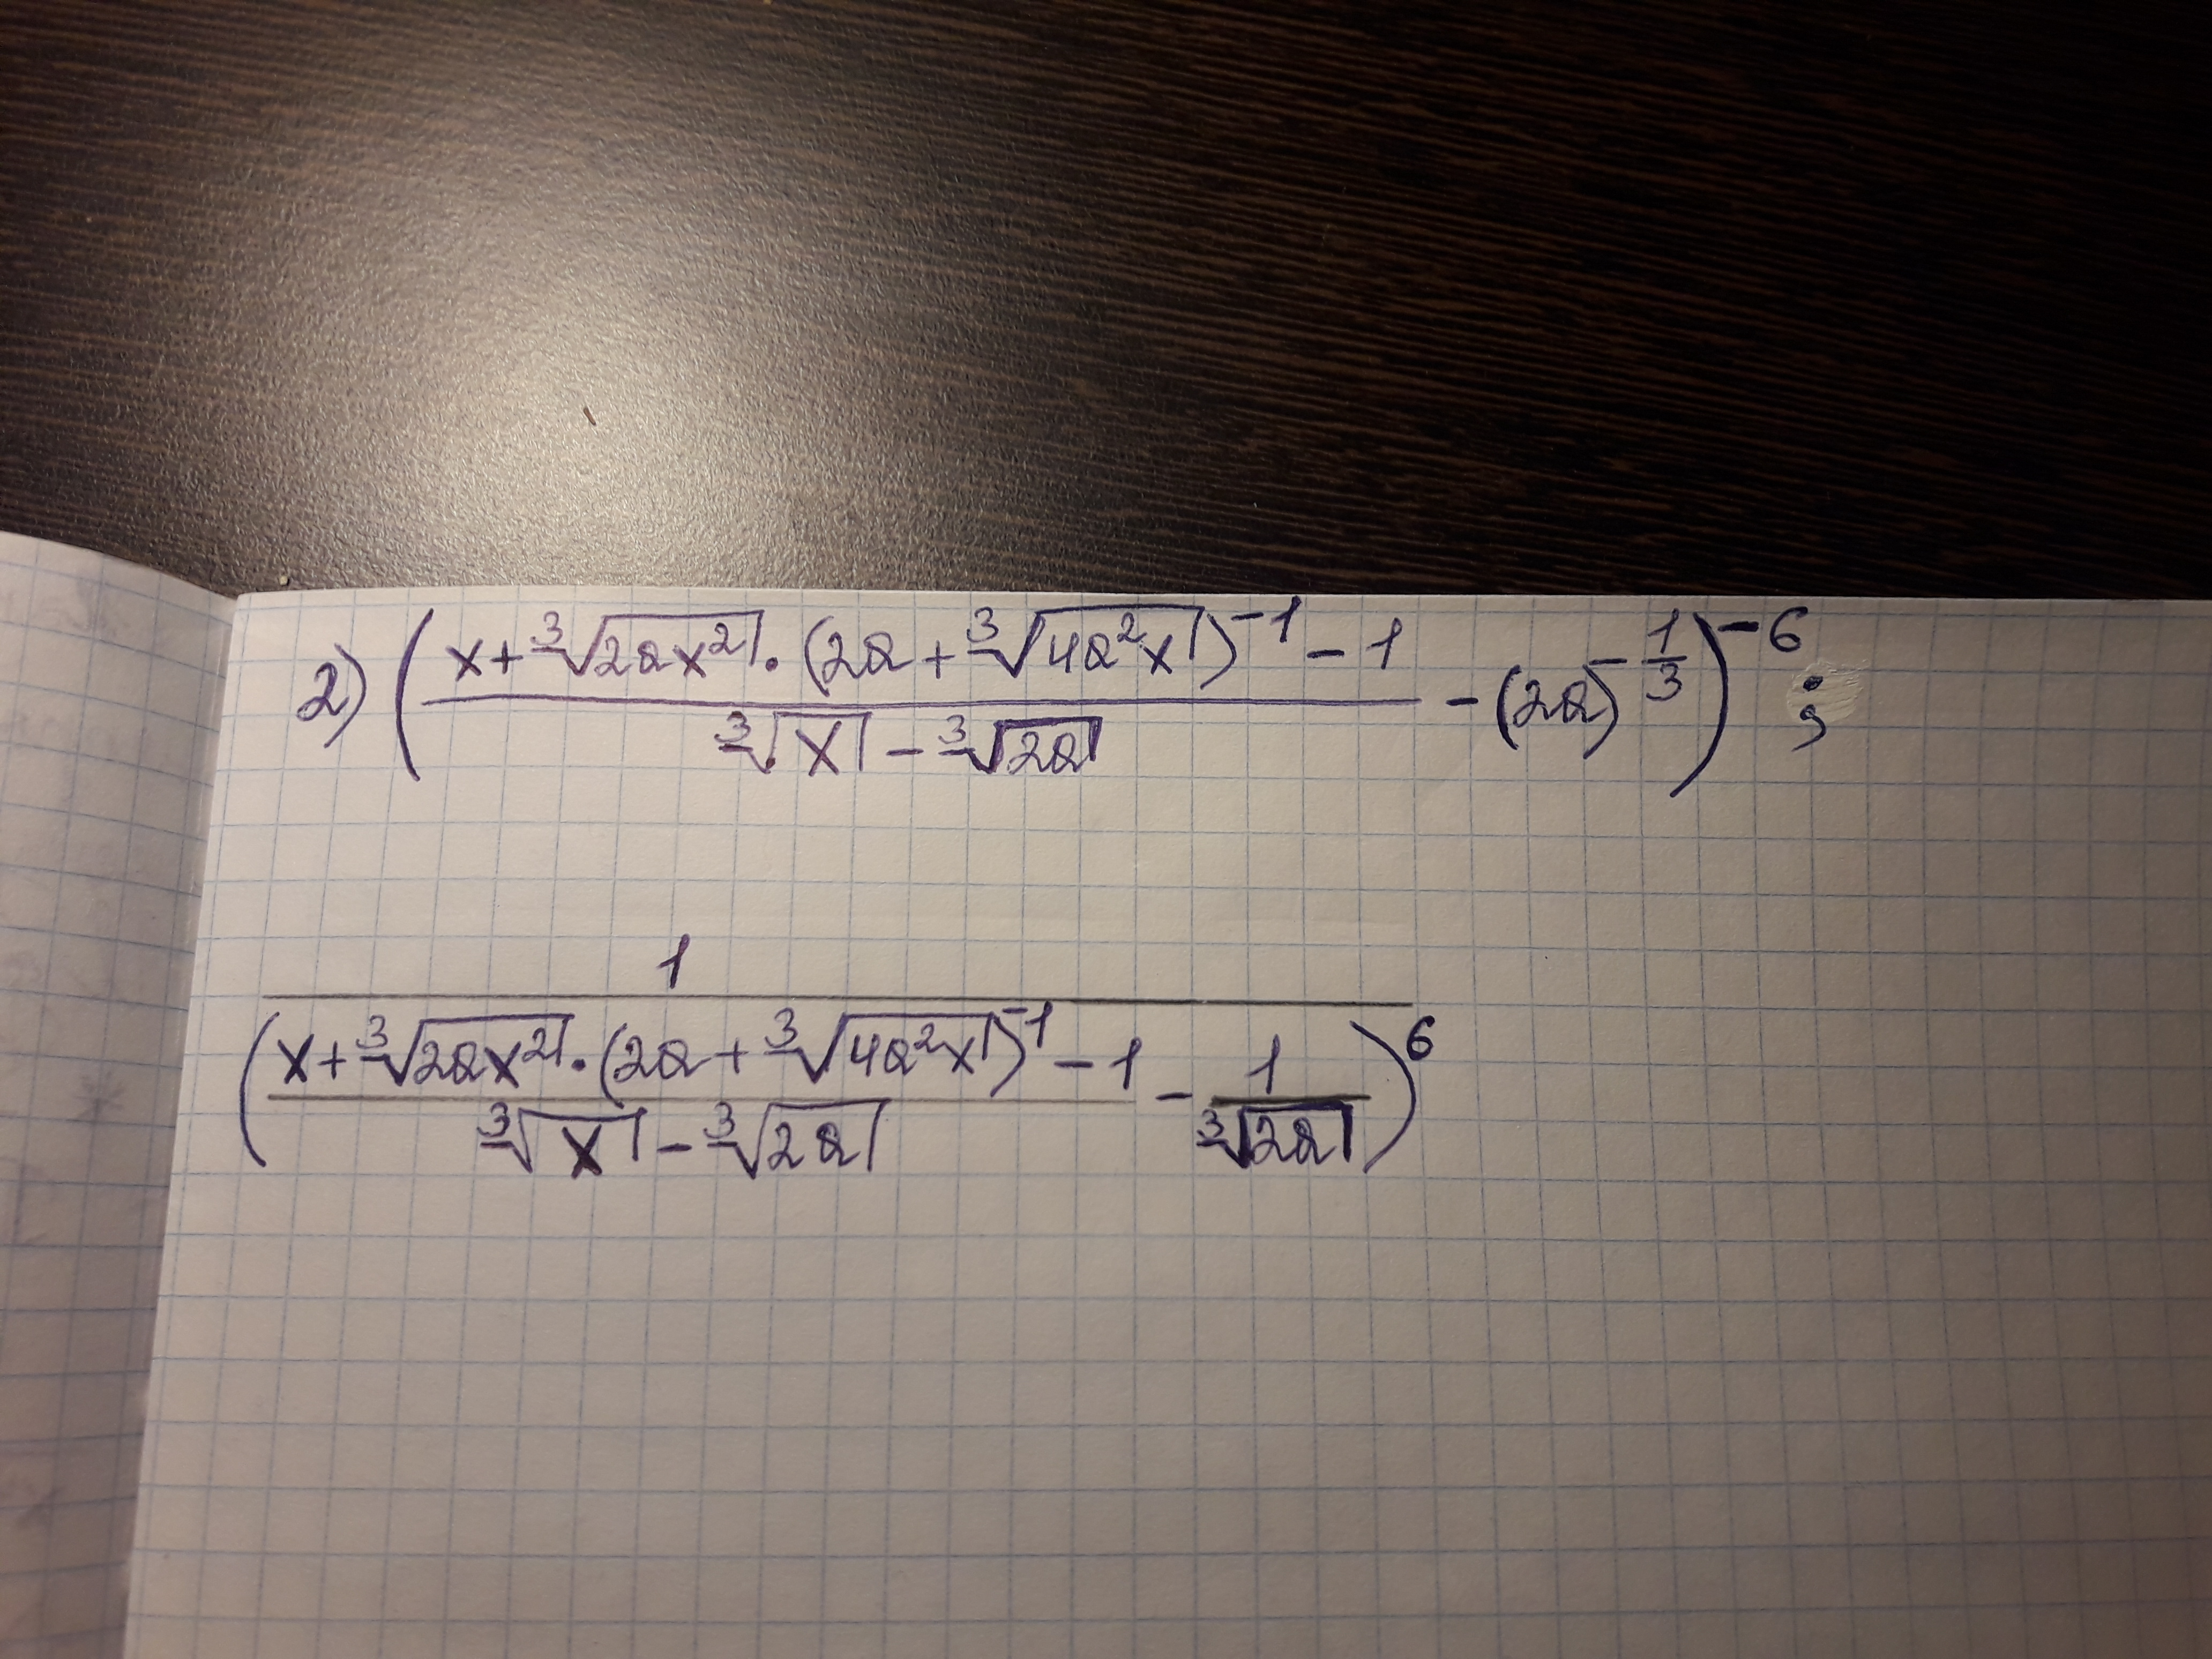 2) ((x+∛(2ax²)·(2a+∛(4a²x))⁻¹-1)/(∛x-∛(2a))-(2a)^(-1/3))⁻⁶;
1/((x+∛(2ax²)·(2a+∛(4a²x))⁻¹-1)/(∛x-∛(2a))-1/∛(2a))⁶